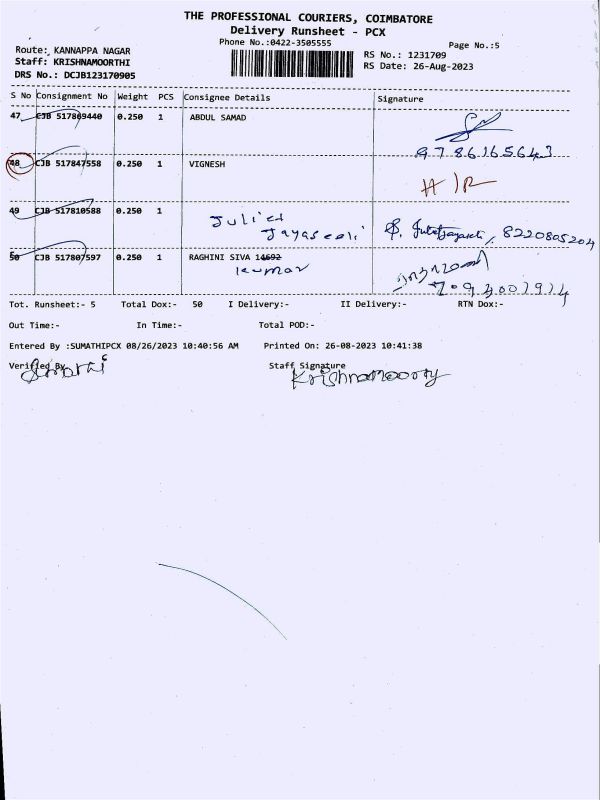 THE PROFESSIONAL COURIERS, COIMBATORE
Delivery Runsheet - PCX
Phone No.:0422-3505555
Page No.:5
Route: KANNAPPA NAGAR
RS No.: 1231709
Staff: KRISHNAMOORTHI
RS Date: 26-Aug-2023
DRS No.: DCJB123170905
S No Consignment No Weight PCS Consignee Details Signature
47 CJB 517869440 0.250 1 ABDUL SAMAD
9786165643
48 CJB 517847558 0.250 1 VIGNESH
49 CJB 517810588 0.250 1 Juliet Jayaseeli 8220805204
50 CJB 517807597 0.250 1 RAGHINI SIVA 14692
kumar
Tot. Runsheet:- 5 Total Dox:- 50 I Delivery:- II Delivery:- RTN Dox:-
Out Time:- In Time:- Total POD:-
Entered By :SUMATHIPCX 08/26/2023 10:40:56 AM Printed On: 26-08-2023 10:41:38
Verified By Staff Signature
Krishnamoorty